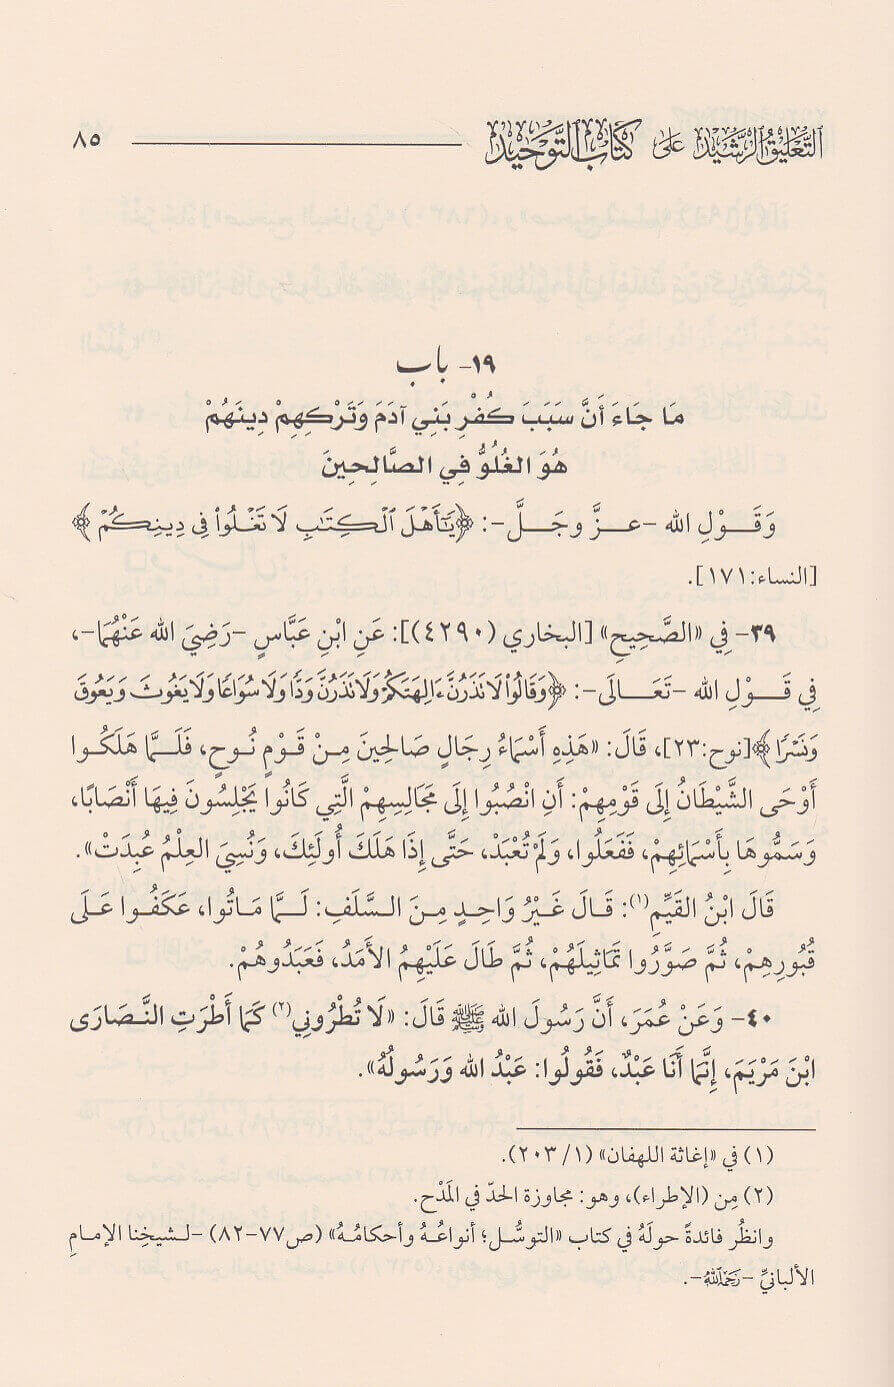 التَّعْلِيقُ الرَّشِيدُ عَلَى كِتَابِ التَّوْحِيدِ ٨٥
١٩- باب
مَا جَاءَ أَنَّ سَبَبَ كُفْرِ بَنِي آدَمَ وَتَرْكِهِمْ دِينَهُمْ
هُوَ الغُلُوُّ فِي الصَّالِحِينَ
وَقَوْلِ الله -عزَّ وجَلَّ-: ﴿يَٰٓأَهْلَ ٱلْكِتَٰبِ لَا تَغْلُوا۟ فِى دِينِكُمْ﴾
[النساء:١٧١].
٣٩- فِي «الصَّحِيحِ» [البخاري (٤٢٩٠)]: عَنِ ابْنِ عَبَّاسٍ -رَضِيَ الله عَنْهُمَا-،
فِي قَوْلِ الله -تَعَالَى-: ﴿وَقَالُوا۟ لَا تَذَرُنَّ ءَالِهَتَكُمْ وَلَا تَذَرُنَّ وَدًّا وَلَا سُوَاعًا وَلَا يَغُوثَ وَيَعُوقَ
وَنَسْرًا﴾[نوح:٢٣]، قَالَ: «هَذِهِ أَسْمَاءُ رِجَالٍ صَالِحِينَ مِنْ قَوْمِ نُوحٍ، فَلَمَّا هَلَكُوا
أَوْحَى الشَّيْطَانُ إِلَى قَوْمِهِمْ: أَنِ انْصُبُوا إِلَى مَجَالِسِهِمْ الَّتِي كَانُوا يَجْلِسُونَ فِيهَا أَنْصَابًا،
وَسَمُّوهَا بِأَسْمَائِهِمْ، فَفَعَلُوا، وَلَمْ تُعْبَدْ، حَتَّى إِذَا هَلَكَ أُولَئِكَ، وَنُسِيَ العِلْمُ عُبِدَتْ».
قَالَ ابْنُ القَيِّمِ(١): قَالَ غَيْرُ وَاحِدٍ مِنَ السَّلَفِ: لَمَّا مَاتُوا، عَكَفُوا عَلَى
قُبُورِهِمْ، ثُمَّ صَوَّرُوا تَمَاثِيلَهُمْ، ثُمَّ طَالَ عَلَيْهِمُ الأَمَدُ، فَعَبَدُوهُمْ.
٤٠- وَعَنْ عُمَرَ، أَنَّ رَسُولَ الله ﷺ قَالَ: «لَا تُطْرُونِي(٢) كَمَا أَطْرَتِ النَّصَارَى
ابْنَ مَرْيَمَ، إِنَّمَا أَنَا عَبْدٌ، فَقُولُوا: عَبْدُ الله وَرَسُولُهُ».
(١) في «إغاثة اللهفان» (١/ ٢٠٣).
(٢) مِن (الإطراء)، وهو: مجاوزة الحدّ في المَدْح.
وانظُر فائدةً حولَهُ في كتاب «التوسُّل؛ أنواعُهُ وأحكامُهُ» (ص٧٧-٨٢) -لشيخِنا الإمامِ
الألبانيِّ -رَحِمَهُ اللهُ-.